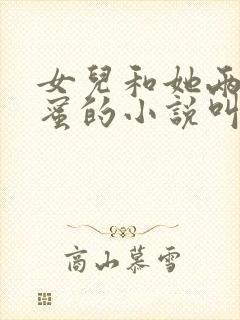 女兒和她兩
蜜的小說叫
高山慕雪